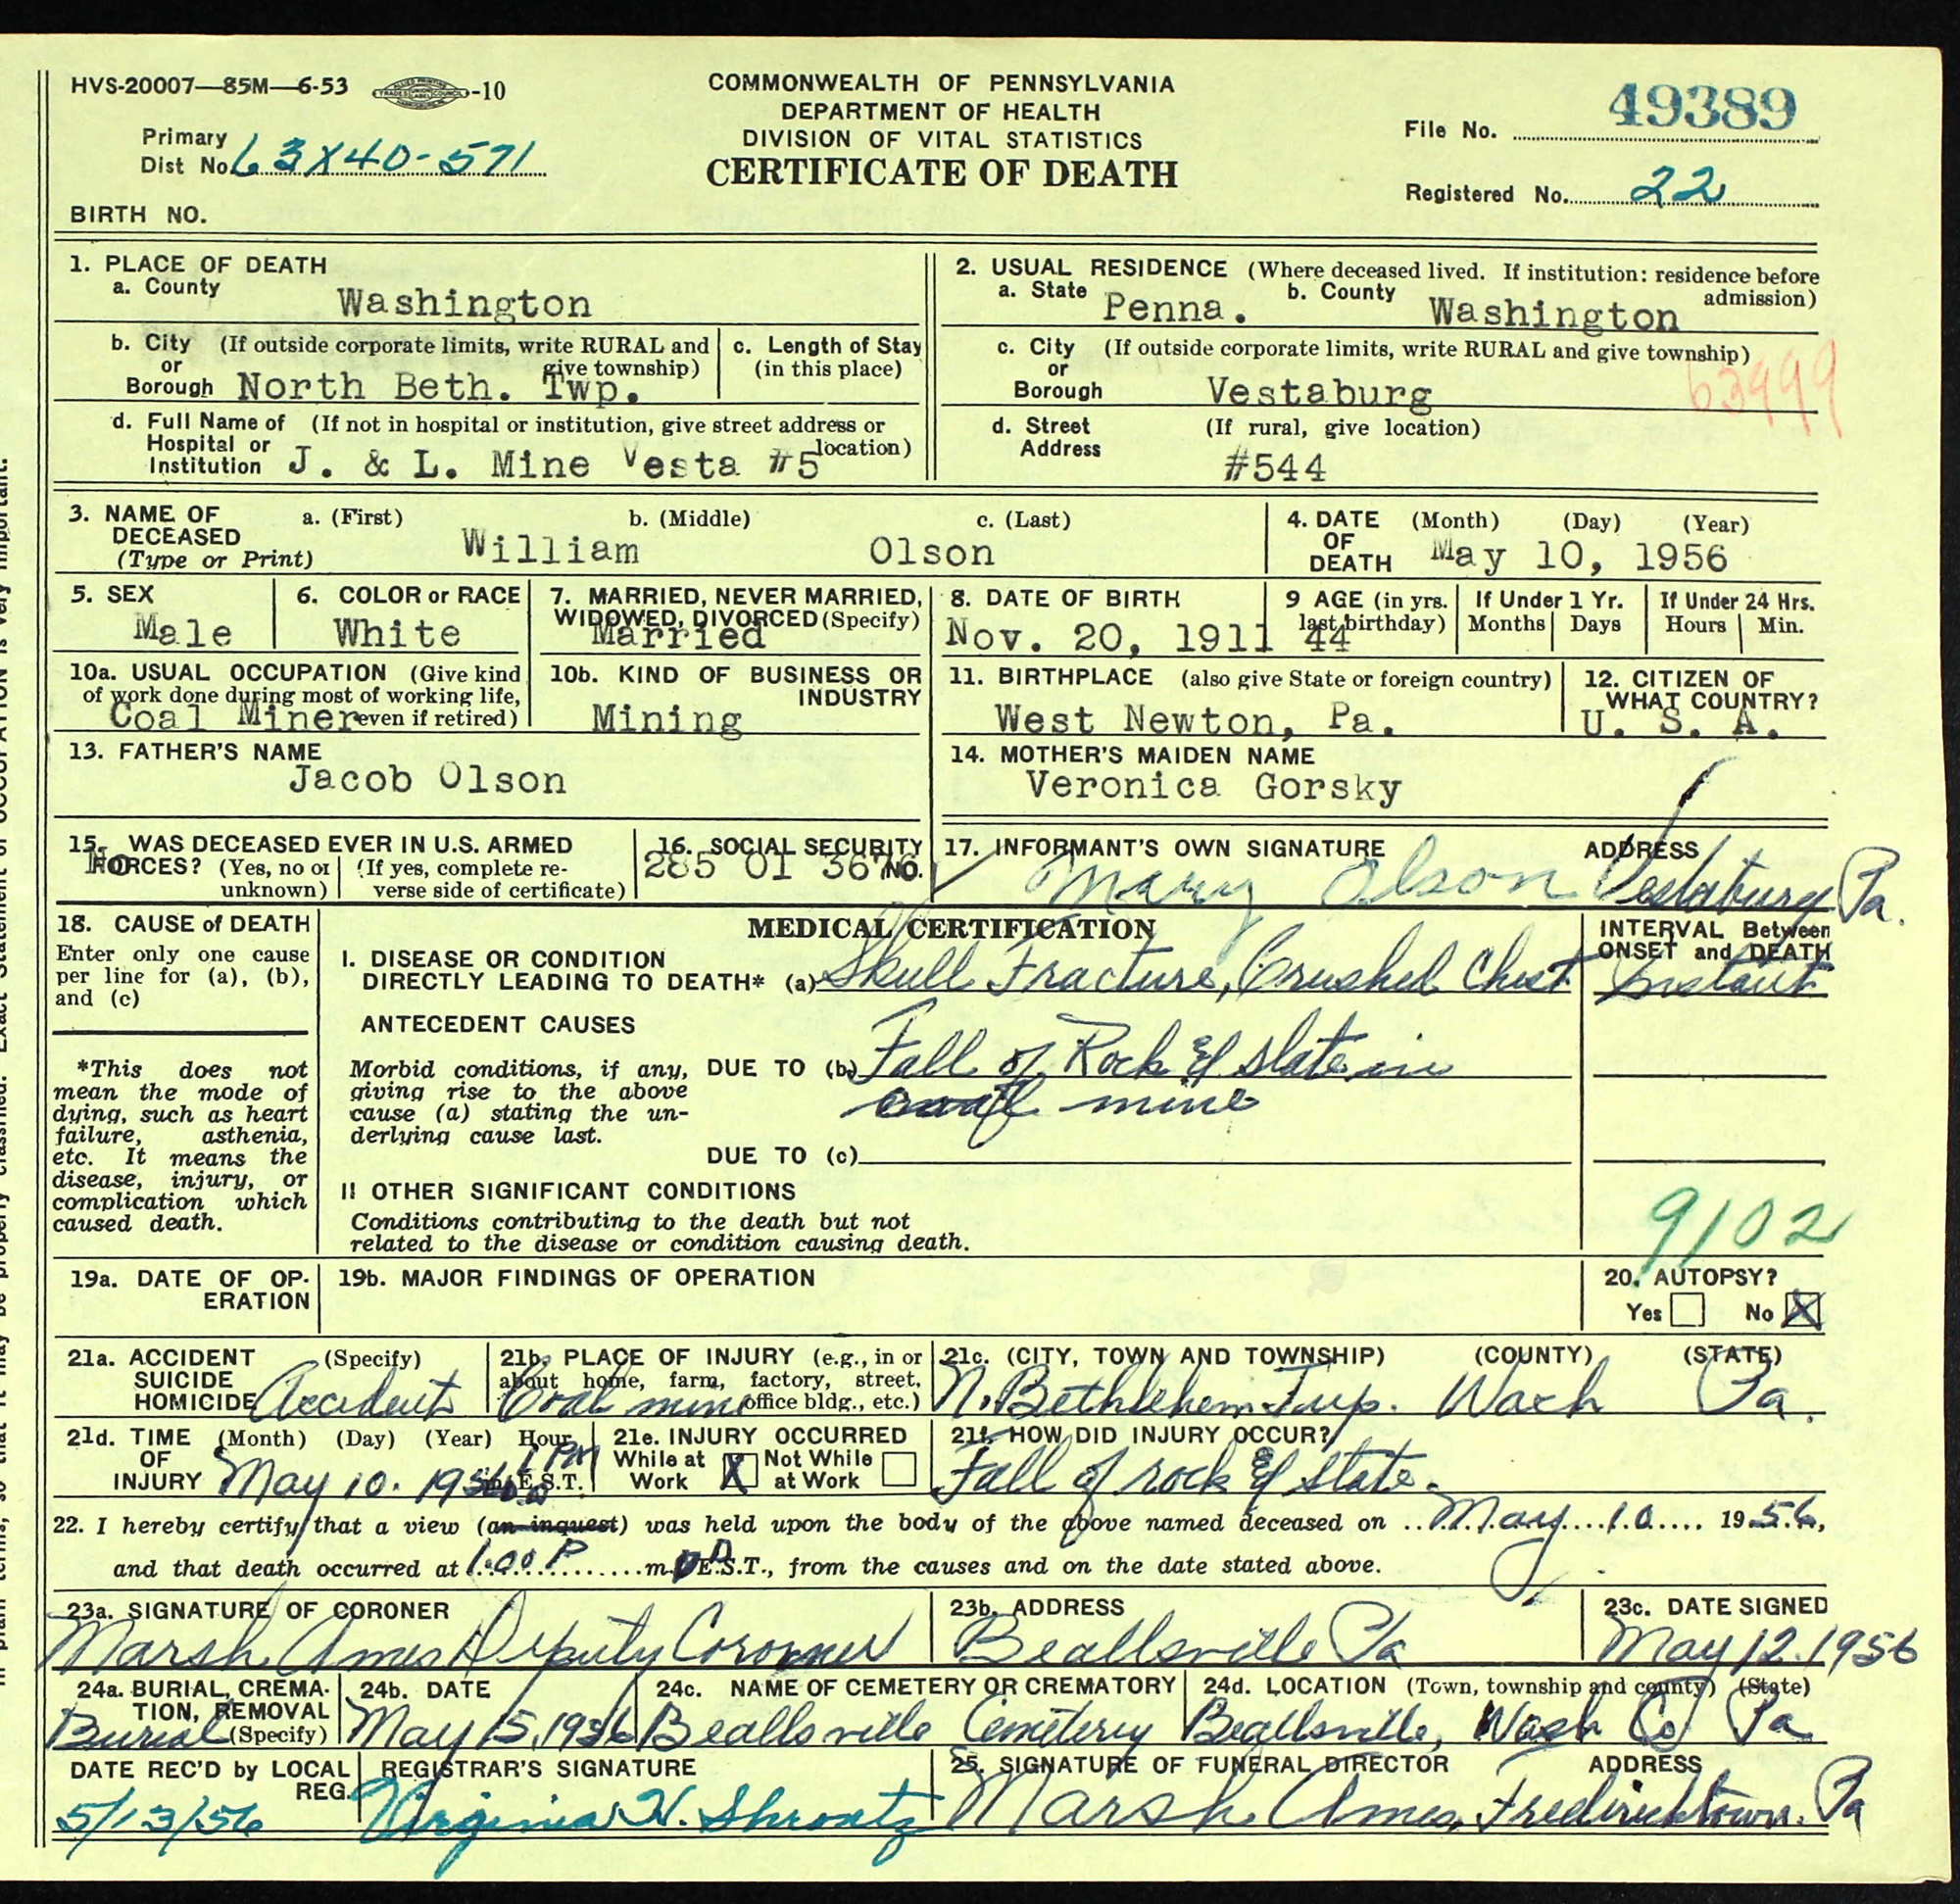 HVS-20007—85M—6-53 -10
COMMONWEALTH OF PENNSYLVANIA
DEPARTMENT OF HEALTH
DIVISION OF VITAL STATISTICS
CERTIFICATE OF DEATH
File No. 49389
Primary
Dist No. 63X40-571
Registered No. 22
BIRTH NO.
1. PLACE OF DEATH
a. County
Washington
2. USUAL RESIDENCE (Where deceased lived. If institution: residence before admission)
a. State Penna. b. County Washington
b. City or Borough (If outside corporate limits, write RURAL and give township)
North Beth. Twp.
c. Length of Stay (in this place)
c. City or Borough (If outside corporate limits, write RURAL and give township)
Vestaburg
63999
d. Full Name of Hospital or Institution (If not in hospital or institution, give street address or location)
J. & L. Mine Vesta #5
d. Street Address (If rural, give location)
#544
3. NAME OF DECEASED (Type or Print)
a. (First) b. (Middle) c. (Last)
William Olson
4. DATE OF DEATH (Month) (Day) (Year)
May 10, 1956
5. SEX
Male
6. COLOR or RACE
White
7. MARRIED, NEVER MARRIED, WIDOWED, DIVORCED (Specify)
Married
8. DATE OF BIRTH
Nov. 20, 1911
9 AGE (in yrs. last birthday)
44
If Under 1 Yr.
Months Days
If Under 24 Hrs.
Hours Min.
10a. USUAL OCCUPATION (Give kind of work done during most of working life, even if retired)
Coal Miner
10b. KIND OF BUSINESS OR INDUSTRY
Mining
11. BIRTHPLACE (also give State or foreign country)
West Newton, Pa.
12. CITIZEN OF WHAT COUNTRY?
U. S. A.
13. FATHER'S NAME
Jacob Olson
14. MOTHER'S MAIDEN NAME
Veronica Gorsky
15. WAS DECEASED EVER IN U.S. ARMED FORCES? (Yes, no or unknown) (If yes, complete reverse side of certificate)
No
16. SOCIAL SECURITY NO.
285 01 3676
17. INFORMANT'S OWN SIGNATURE ADDRESS
Mary Olson Vestaburg Pa.
18. CAUSE of DEATH
Enter only one cause per line for (a), (b), and (c)
*This does not mean the mode of dying, such as heart failure, asthenia, etc. It means the disease, injury, or complication which caused death.
MEDICAL CERTIFICATION
INTERVAL Between ONSET and DEATH
I. DISEASE OR CONDITION
DIRECTLY LEADING TO DEATH* (a) Skull Fracture, Crushed Chest Instant
ANTECEDENT CAUSES
Morbid conditions, if any, giving rise to the above cause (a) stating the underlying cause last.
DUE TO (b) Fall of Rock & slate in
coal mine
DUE TO (c)
II OTHER SIGNIFICANT CONDITIONS
Conditions contributing to the death but not
related to the disease or condition causing death.
9102
19a. DATE OF OPERATION
19b. MAJOR FINDINGS OF OPERATION
20. AUTOPSY?
Yes No X
21a. ACCIDENT SUICIDE HOMICIDE (Specify)
Accident
21b. PLACE OF INJURY (e.g., in or about home, farm, factory, street, office bldg., etc.)
Coal mine
21c. (CITY, TOWN AND TOWNSHIP) (COUNTY) (STATE)
N. Bethlehem Twp. Wash Pa.
21d. TIME OF INJURY (Month) (Day) (Year) Hour
May 10. 1956 1 PM E.S.T.
21e. INJURY OCCURRED
While at Work X Not While at Work
21f. HOW DID INJURY OCCUR?
Fall of rock & slate.
22. I hereby certify that a view (an inquest) was held upon the body of the above named deceased on May 10 1956,
and that death occurred at 1:00 P m. D E.S.T., from the causes and on the date stated above.
23a. SIGNATURE OF CORONER
Marsh Ames Deputy Coroner
23b. ADDRESS
Beallsville Pa
23c. DATE SIGNED
May 12. 1956
24a. BURIAL, CREMATION, REMOVAL (Specify)
Burial
24b. DATE
May 15, 1956
24c. NAME OF CEMETERY OR CREMATORY
Beallsville Cemetery
24d. LOCATION (Town, township and county) (State)
Beallsville, Wash Co Pa
DATE REC'D by LOCAL REG.
5/13/56
REGISTRAR'S SIGNATURE
Virginia H. Shrontz
25. SIGNATURE OF FUNERAL DIRECTOR ADDRESS
Marsh Ames, Fredericktown. Pa